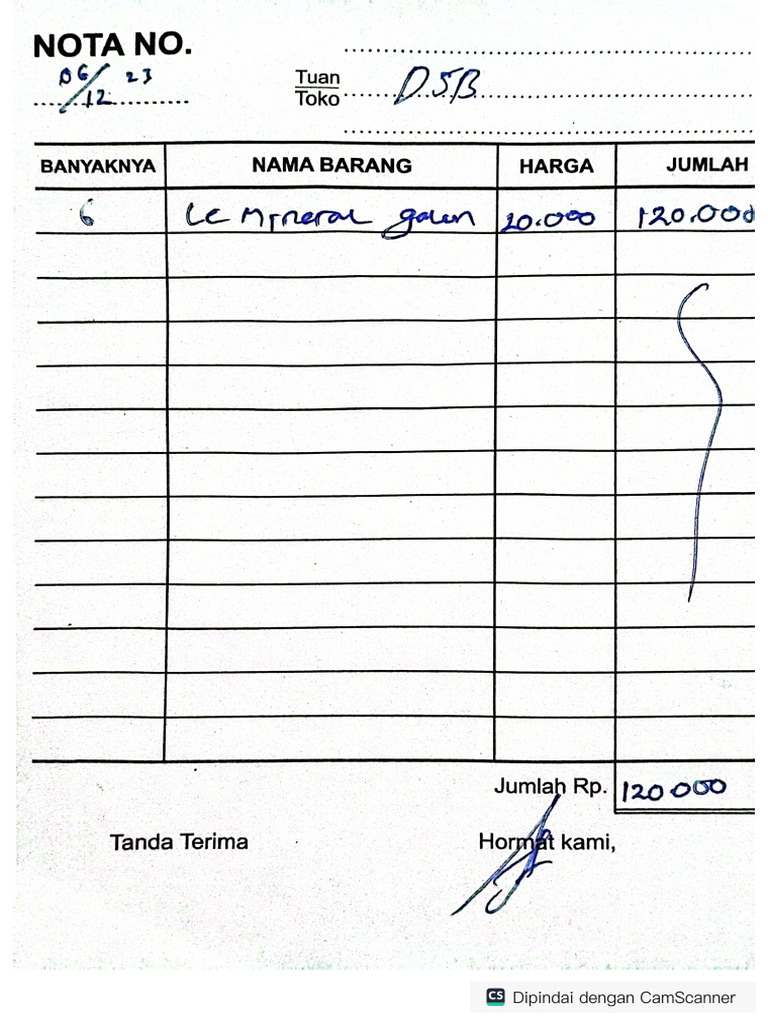 NOTA NO.
06/12 23
Tuan
Toko
DSB
BANYAKNYA NAMA BARANG HARGA JUMLAH
6 Le Mineral galen 20.000 120.000
Jumlah Rp. 120 000
Tanda Terima Hormat kami,
CS Dipindai dengan CamScanner